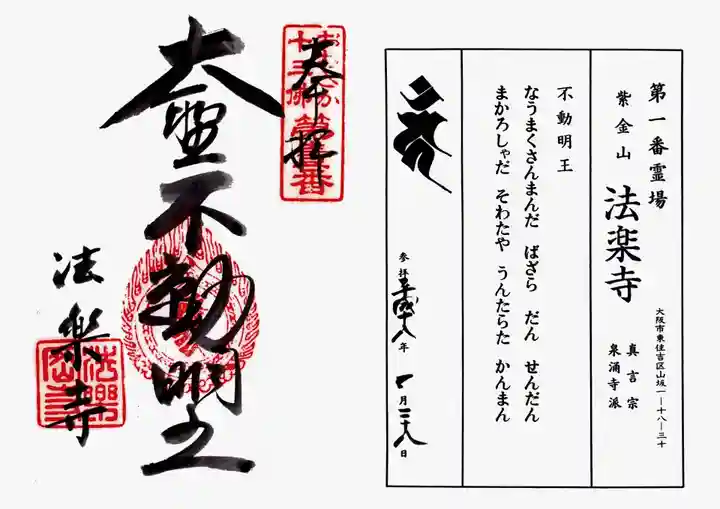 第一番霊場
紫金山 法楽寺
真言宗
泉涌寺派
大阪市東住吉区山坂一ー十八ー三十
不動明王
なうまくさんまんだ ばざら だん せんだん
まかろしゃだ そわたや うんたらた かんまん
参拝平成十八年 月二十八日
奉拝
おおさか
十三佛
第壹番
不動明王
法楽寺